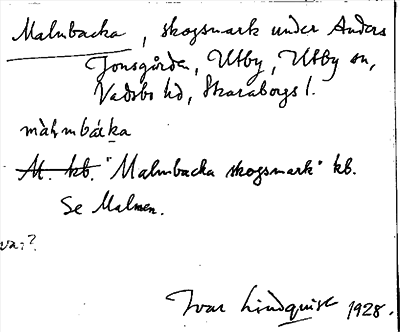 Malmbacka, skogsmark under Anders
Jonsgården, Utby, Utby sn,
Vadsbo hd, Skaraborgs l.
màl̥mbáka
At. kb. "Malmbacka skogsmark" kb.
Se Malmen.
Ivar Lindquist 1928.